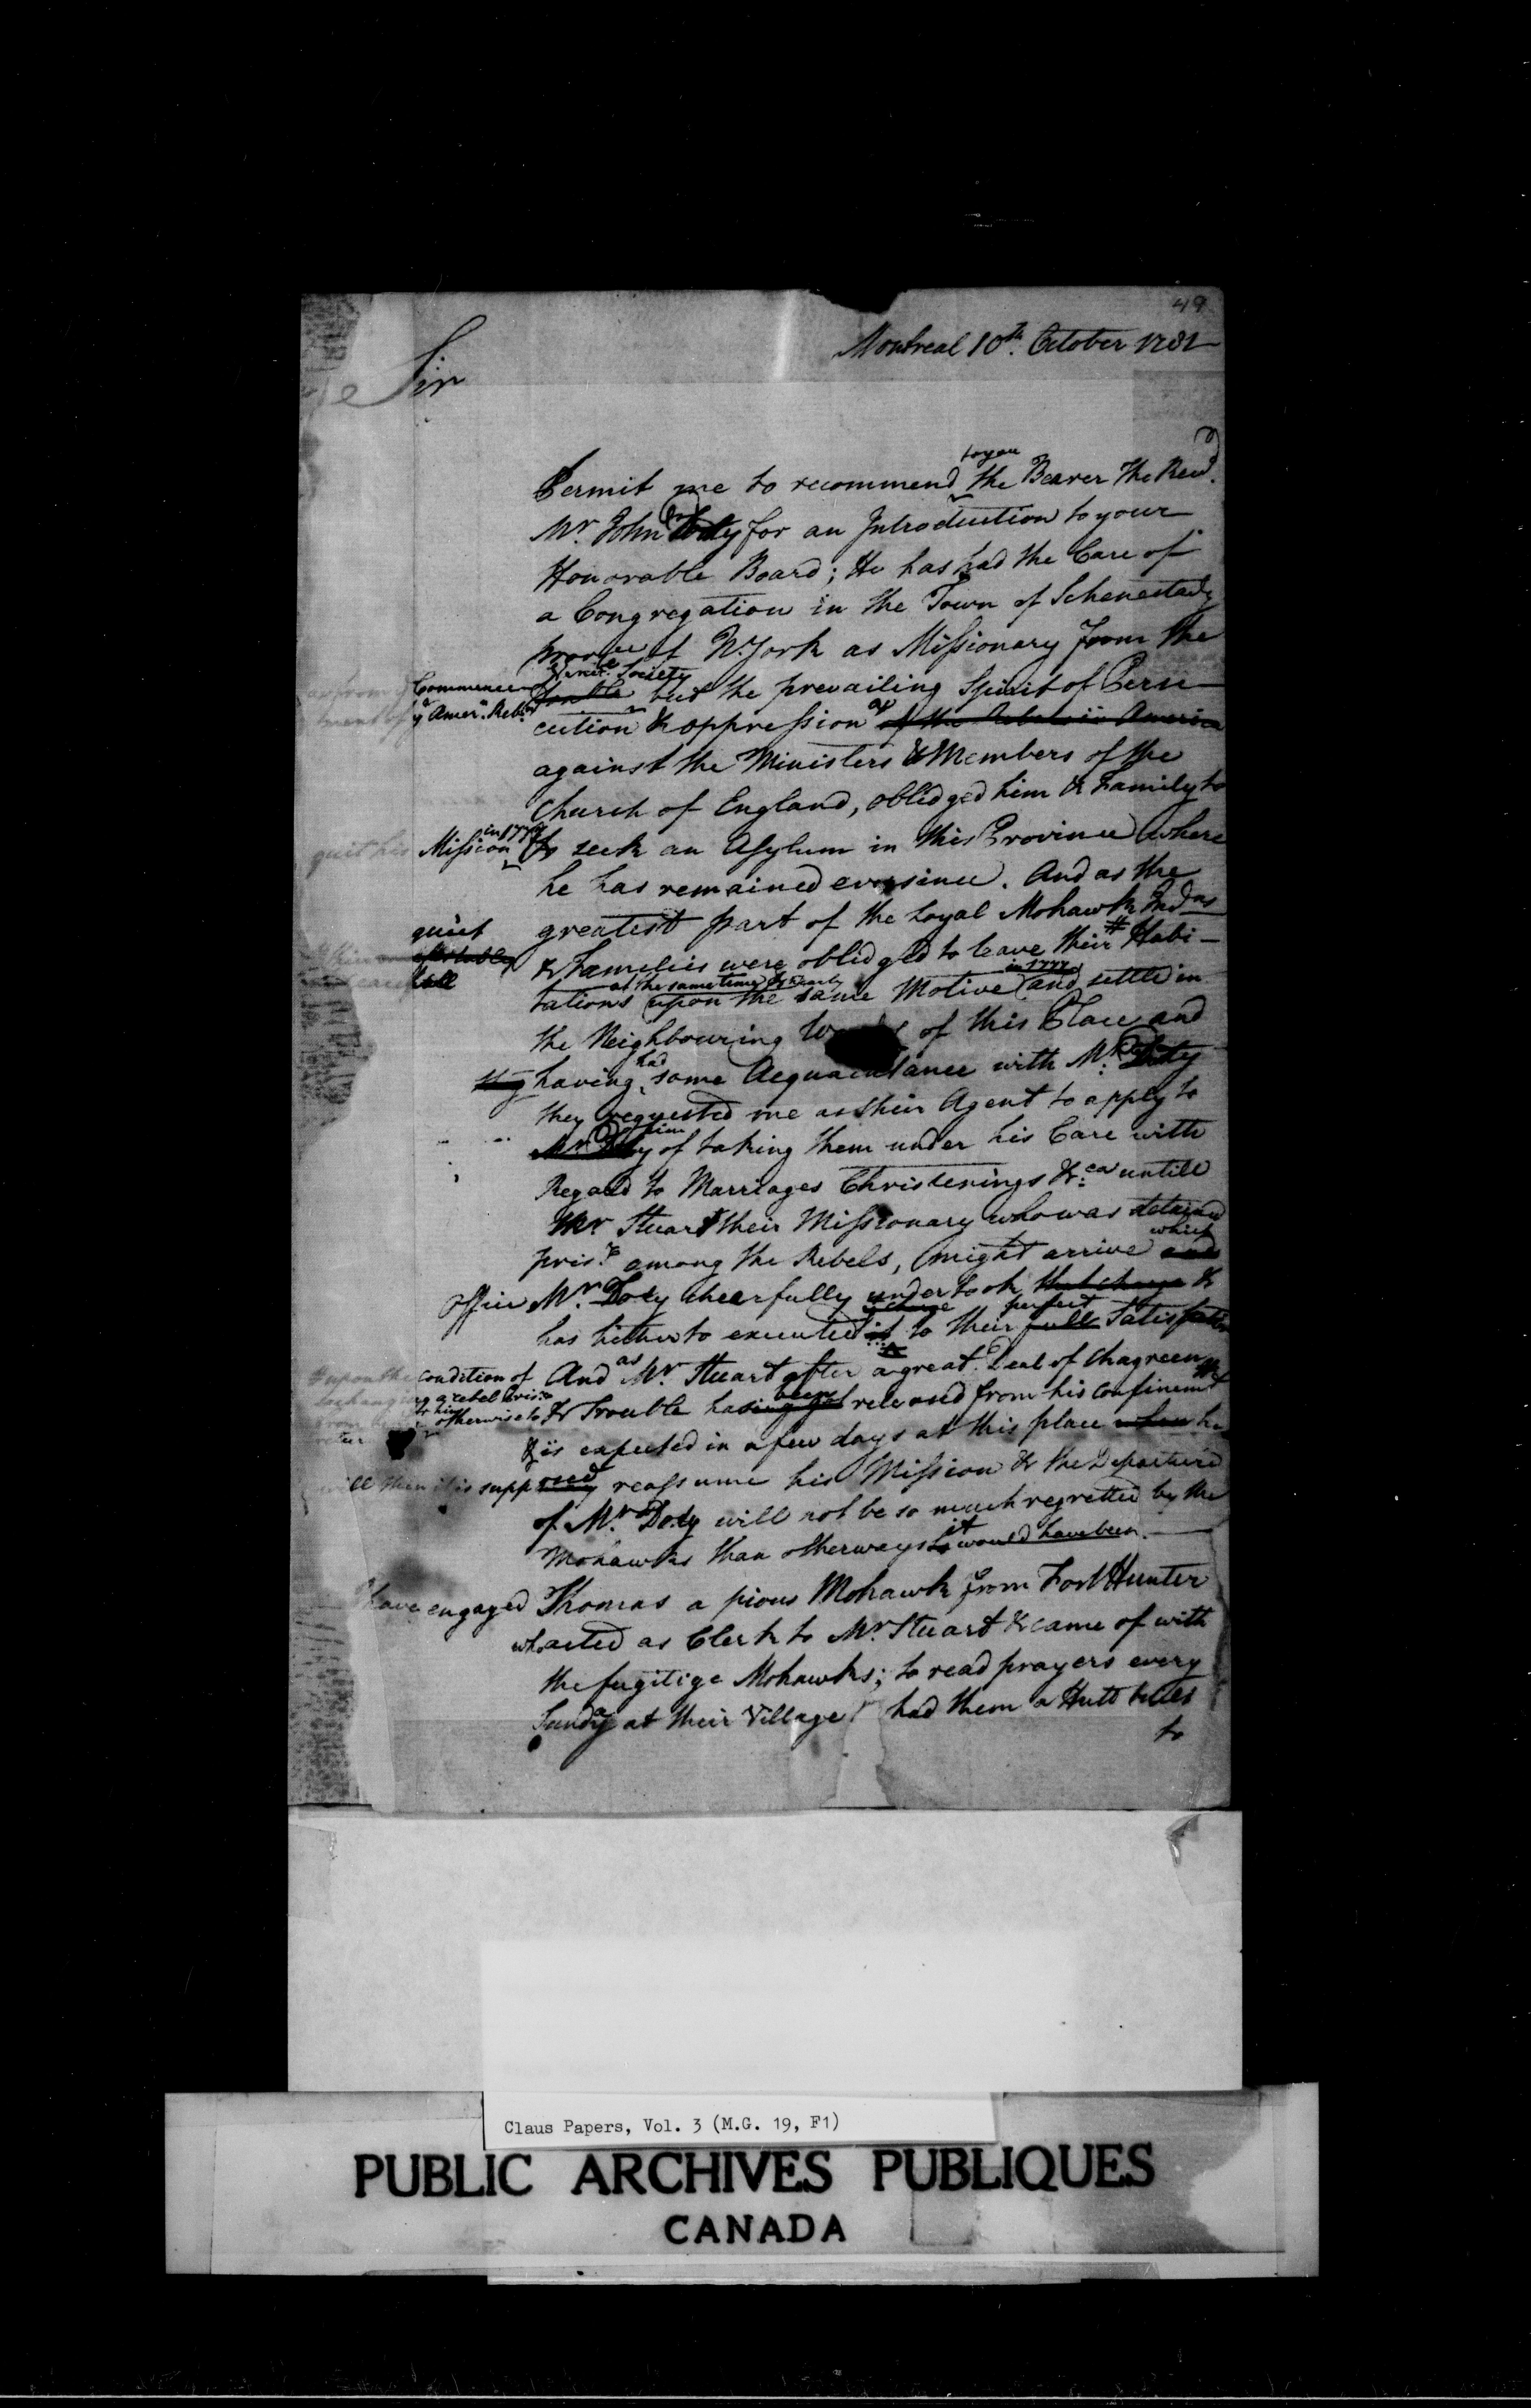 49
Montreal 10th. October 1781
Sir
to you
Permit me to recommend the Bearer The Revd.
Mr. John Doty for an Introduction to your
Honorable Board; He has had the Care of
a Congregation in the Town of Schenectady
of N. York as Missionary from the
Society
Commence
ment of ye Amern. Reb but the prevailing Spirit of Perse-
cution & oppression of the Rebels in America
against the Ministers & Members of the
Church of England, oblidged him & Family to
in 177
quit his Mission to seek an Asylum in this Province where
he has remained ever since. And as the
greatest part of the Loyal Mohawk Indns
quiet
& Famelies were oblidged to leave their # Habi-
at the same time & nearly in 1777
tations upon the same Motive and settle in
the Neighbouring of this Place and
had
having some Acquaintance with Mr. Doty
they requested me as their Agent to apply to
him
Mr. Doty of taking them under his Care with
Regard to Marriages Christenings &ca untill
Mr Stuart their Missionary who was detained
which
prisr. among the Rebels, might arrive and
office Mr. Doty cheerfully undertook that charge &
perfect
has hitherto executed it to their full Satisfaction
as
upon the condition of And Mr. Stuart after a great Deal of Chagreen
exchanging a rebel prisr.
been
otherwise to & Trouble having got released from his confinemt
& is expected in a few days at this place when he
will then it is supposed reassume his Mission & the Departure
of Mr. Doty will not be so much regretted by the
it
Mohawks than otherways would have been.
I have engaged Thomas a pious Mohawk from Fort Hunter
who acted as Clerk to Mr. Stuart & came of with
the fugitige Mohawks; to read prayers every
Sunday at their Village I had them a Hutt built
to
Claus Papers, Vol. 3 (M.G. 19, F1)
PUBLIC ARCHIVES PUBLIQUES
CANADA